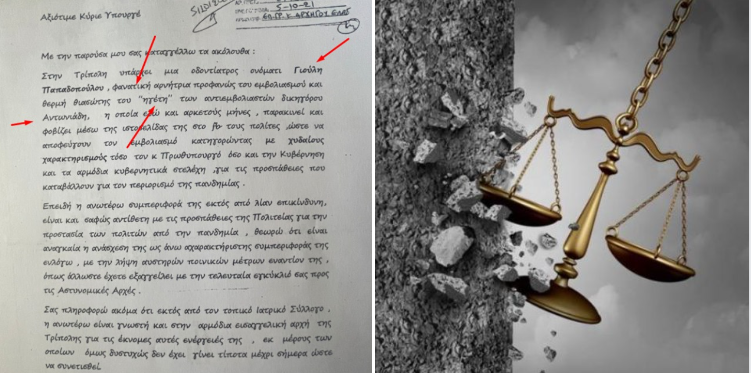 Αξιότιμε Κύριε Υπουργέ
5-10-21
Με την παρούσα μου σας καταγγέλλω τα ακόλουθα :
Στην Τρίπολη υπάρχει μια οδοντίατρος ονόματι Γιούλη
Παπαδοπούλου , φανατική αρνήτρια προφανώς του εμβολιασμού και
θερμή θιασώτης του "ηγέτη" των αντιεμβολιαστών δικηγόρου
Αντωνιάδη, η οποία εδώ και αρκετούς μήνες , παρακινεί και
φοβίζει μέσω της ιστοσελίδας της στο τους πολίτες ,ώστε να
αποφεύγουν τον εμβολιασμό κατηγορώντας με χυδαίους
χαρακτηρισμούς τόσο τον κ Πρωθυπουργό όσο και την Κυβέρνηση
και τα αρμόδια κυβερνητικά στελέχη ,για τις προσπάθειες που
καταβάλλουν για τον περιορισμό της πανδημίας .
Επειδή η ανωτέρω συμπεριφορά της εκτός από λίαν επικίνδυνη,
είναι και σαφώς αντίθετη με τις προσπάθειες της Πολιτείας για την
προστασία των πολιτών από την πανδημία , θεωρώ ότι είναι
αναγκαία η ανάσχεση της ως άνω αχαρακτήριστης συμπεριφοράς της
ενλόγω , με την λήψη αυστηρών ποινικών μέτρων εναντίον της ,
όπως άλλωστε έχετε εξαγγείλει με την τελευταία εγκύκλιό σας προς
τις Αστυνομικές Αρχές .
Σας πληροφορώ ακόμα ότι εκτός από τον τοπικό Ιατρικό Σύλλογο ,
η ανωτέρω είναι γνωστή και στην αρμόδια εισαγγελική αρχή της
Τρίπολης για τις έκνομες αυτές ενέργειές της , εκ μέρους των
οποίων όμως δυστυχώς δεν έχει γίνει τίποτα μέχρι σήμερα ώστε
να συνετισθεί